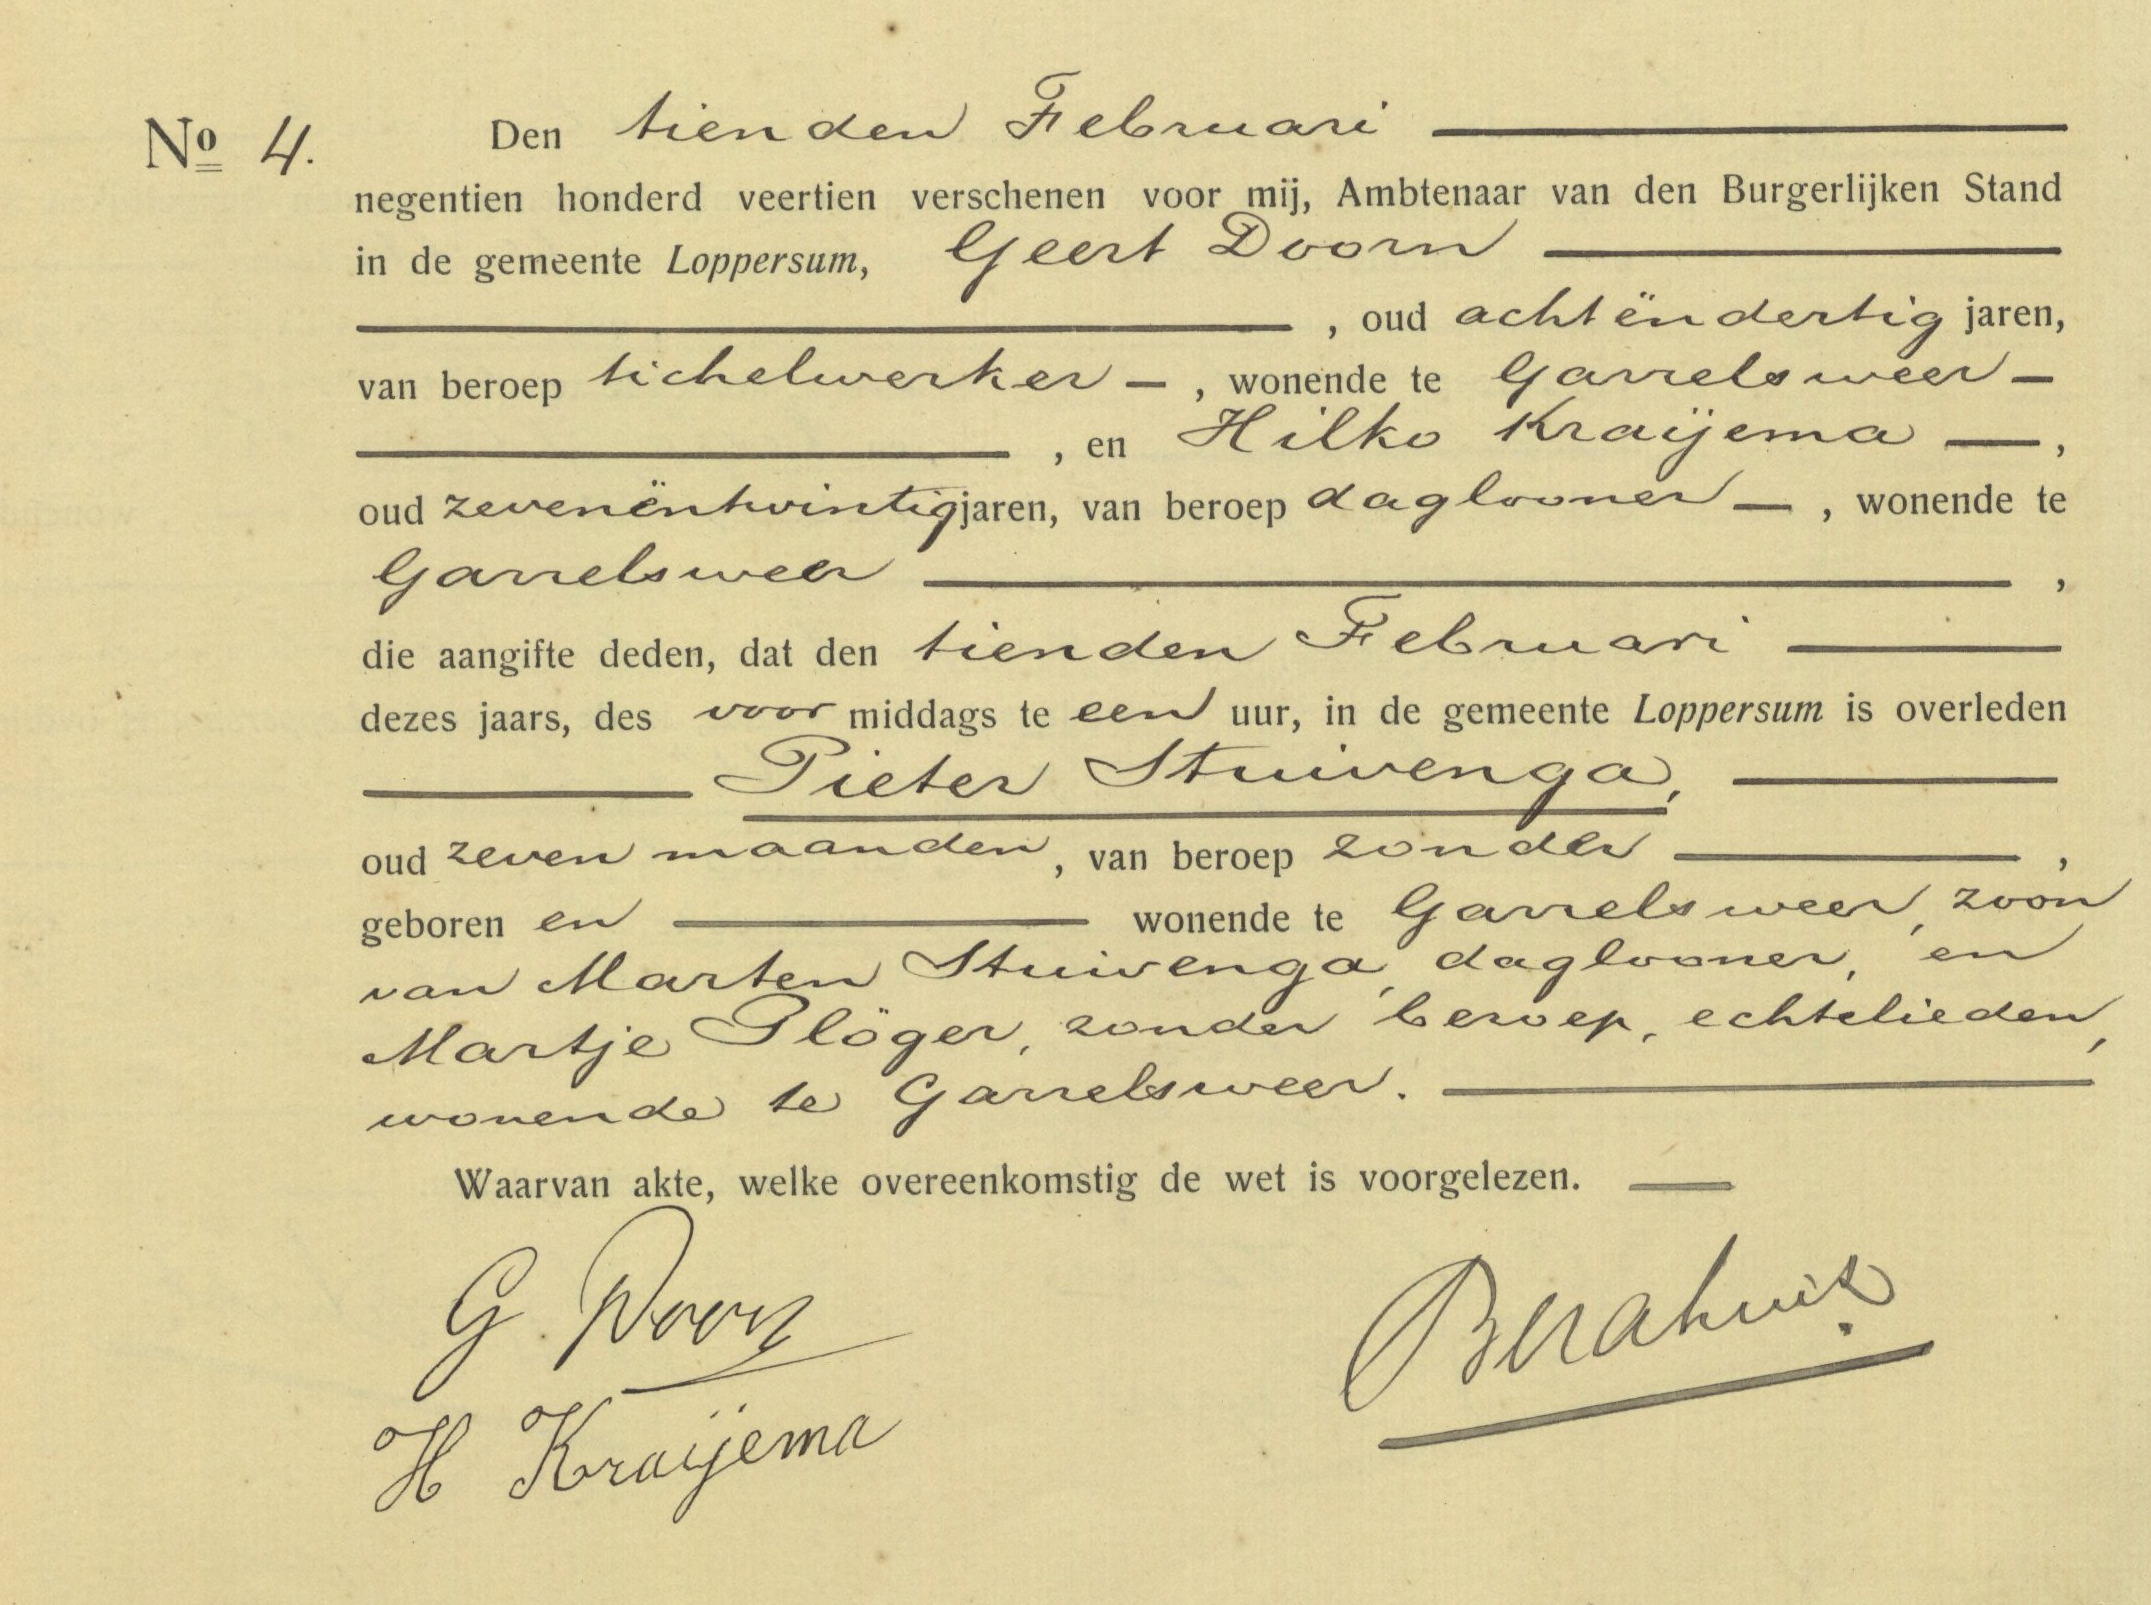 Nº 4. Den tienden Februari
negentien honderd veertien verschenen voor mij, Ambtenaar van den Burgerlijken Stand
in de gemeente Loppersum, Geert Doorn
, oud achtëndertig jaren,
van beroep tichelwerker – , wonende te Garrelsweer –
, en Hilko Kraijema — ,
oud zevenëntwintig jaren, van beroep daglooner — , wonende te
Garrelsweer ,
die aangifte deden, dat den tienden Februari
dezes jaars, des voor middags te een uur, in de gemeente Loppersum is overleden
Pieter Stuivenga,
oud zeven maanden, van beroep zonder ,
geboren en wonende te Garrelsweer, zoon
van Marten Stuivenga, daglooner, en
Martje Plöger, zonder beroep, echtelieden,
wonende te Garrelsweer.
Waarvan akte, welke overeenkomstig de wet is voorgelezen.
G. Doorn
H Kraijema